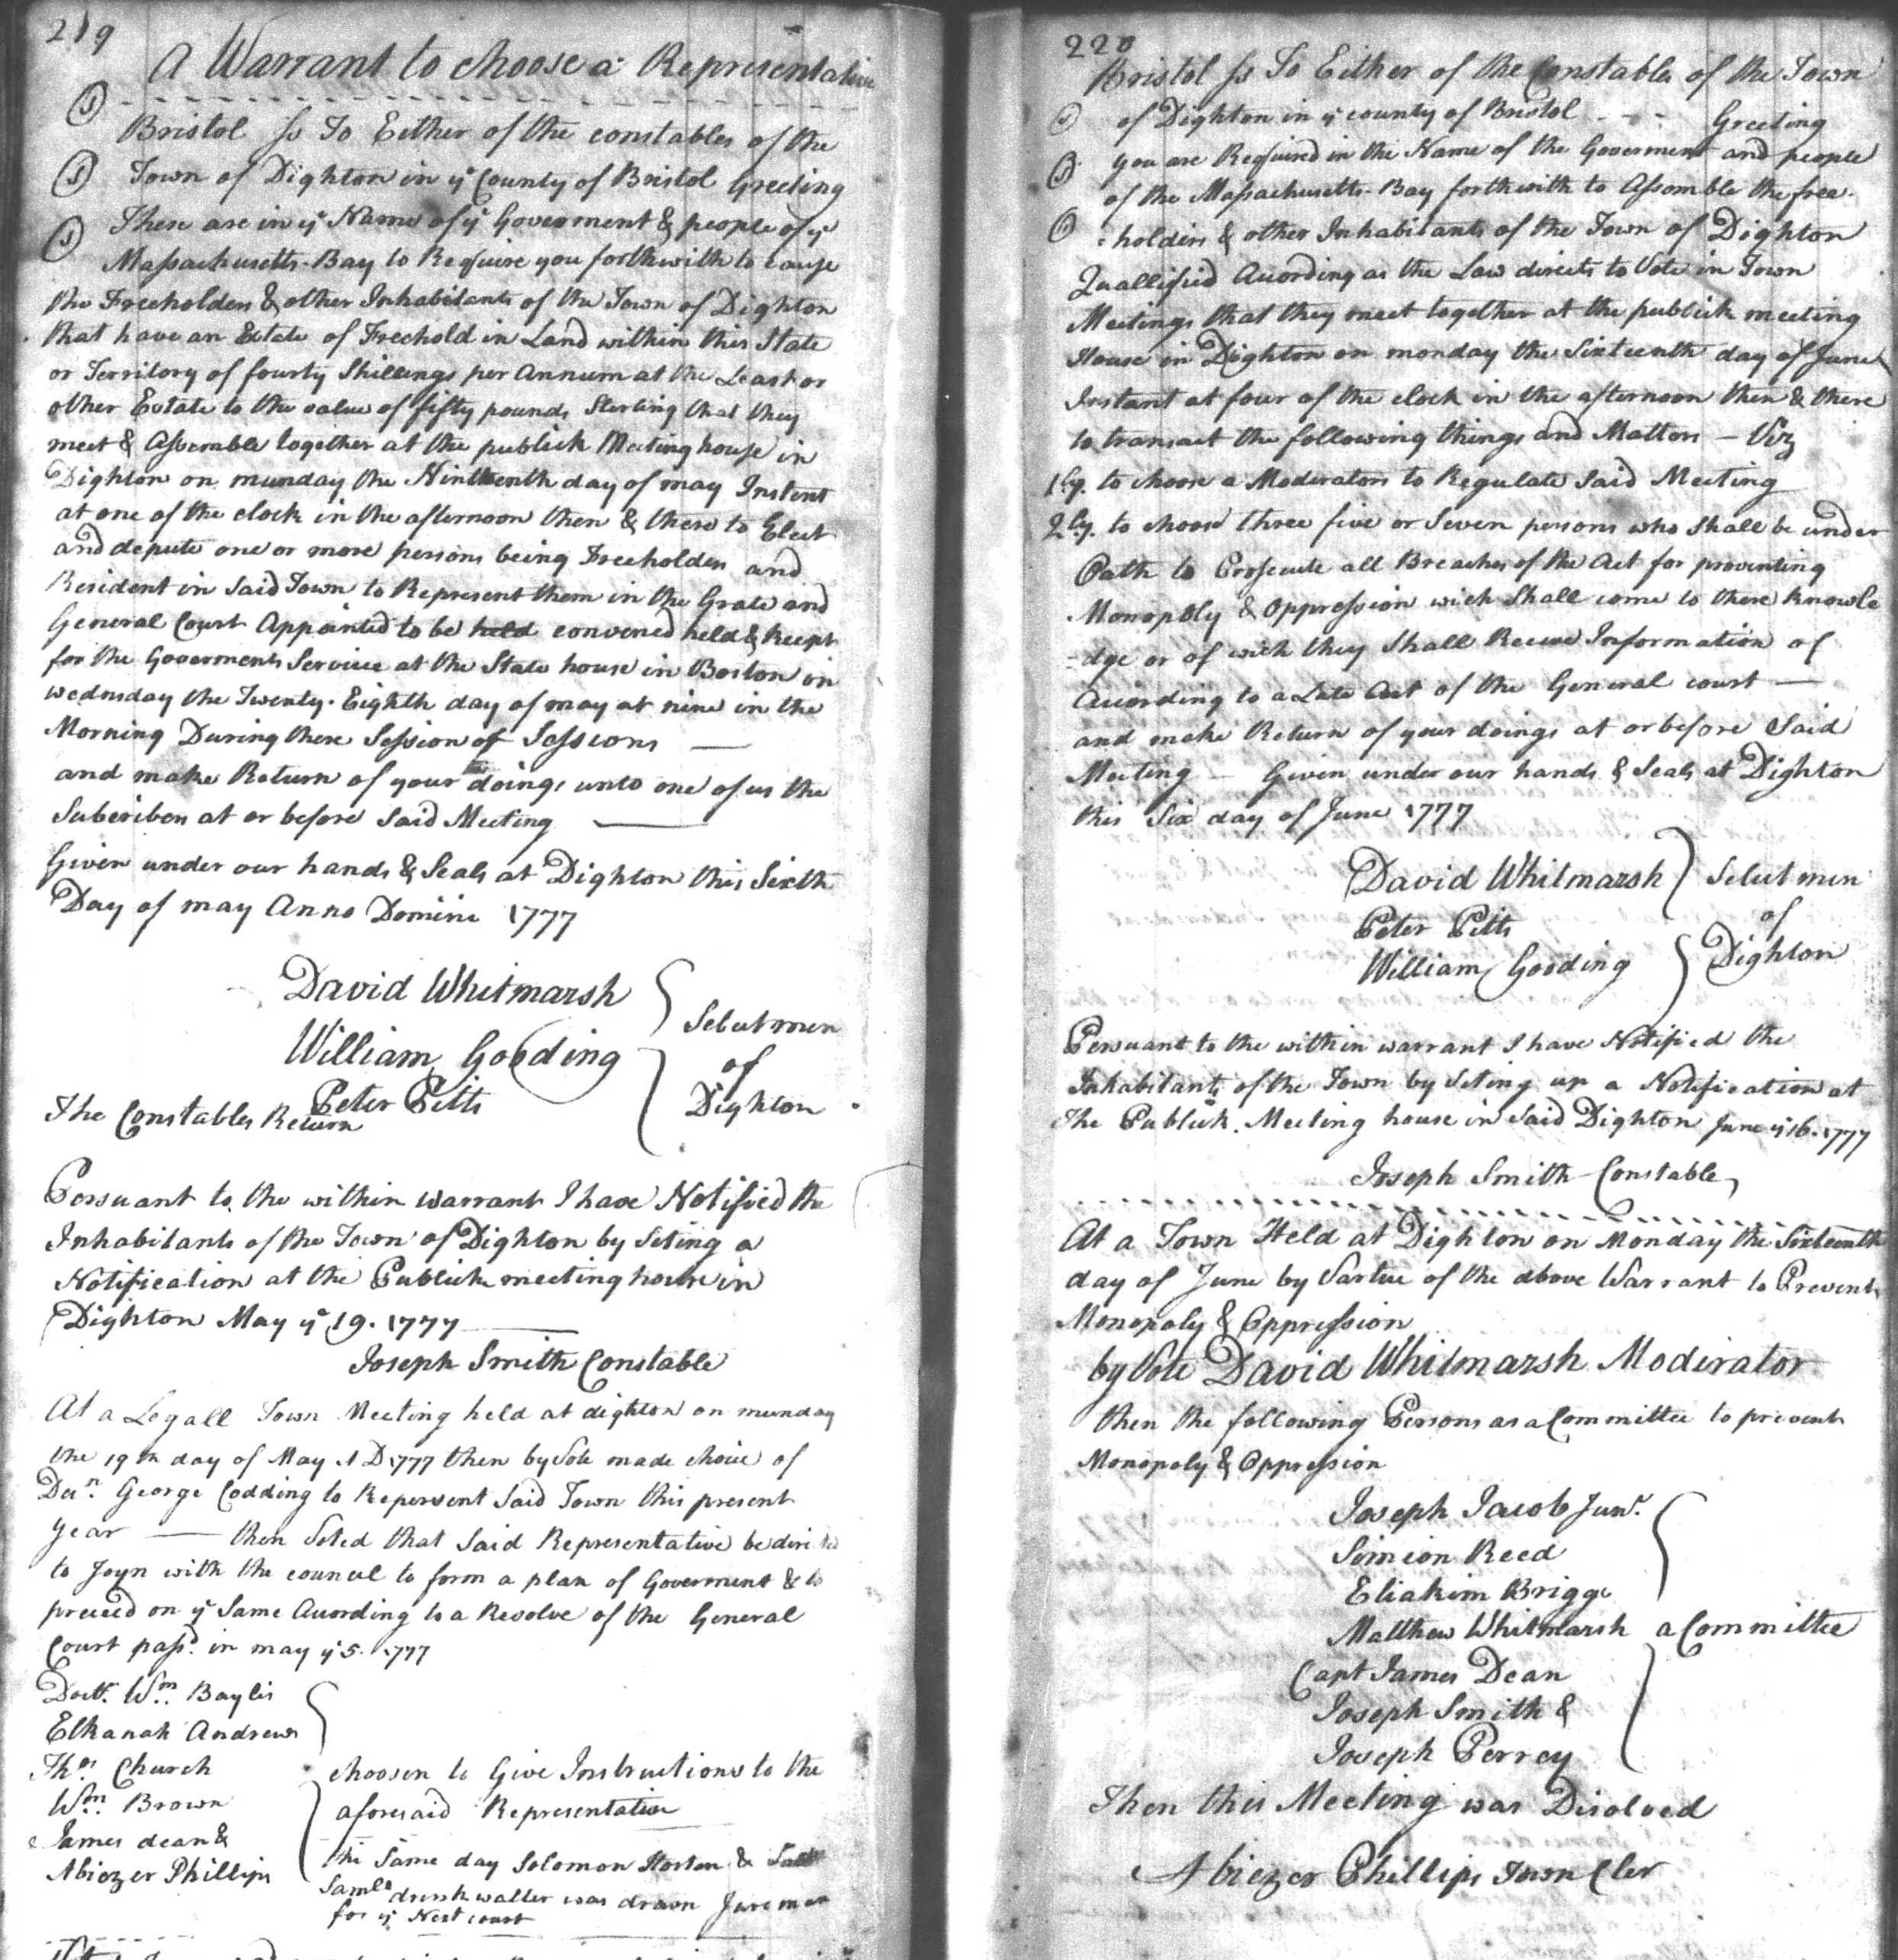 219
A Warrant to choose a Representative
Bristol Ss To Either of the constables of the
Town of Dighton in yͤ County of Bristol Greeting
These are in yͤ Name of yͤ Goverment & people of yͤ
Massachusetts-Bay to Require you forthwith to cause
the Freeholders & other Inhabitants of the Town of Dighton
that have an Estate of Freehold in Land within this State
or Territory of fourty Shillings per Annum at the Least or
other Estate to the value of fifty pounds Sterling that they
meet & Assemble together at the publick Meeting house in
Dighton on munday the Ninteenth day of may Instent
at one of the clock in the afternoon then & there to Elect
and depute one or more persons being Freeholders and
Resident in Said Town to Represent them in the Grate and
General Court Appointed to be held convened held & keept
for the Goverments Service at the State house in Boston on
wednsday the Twenty-Eighth day of may at nine in the
Morning During there Session of Sessions —
and make Return of your doings unto one of us the
Subscribers at or before Said Meeting —
Given under our hands & Seals at Dighton this Sixth
Day of may Anno Domini 1777
David Whitmarsh
William Gooding
Peter Pitts
Selectmen
of
Dighton
The Constables Return
Persuant to the within warrant I have Notified the
Inhabitants of the Town of Dighton by Seting a
Notification at the Publick meeting house in
Dighton May yͤ 19. 1777
Joseph Smith Constable
At a Legall Town Meeting held at dighton on munday
the 19th day of May AD 1777 then by Vote made choice of
Dean. George Codding to Repersent Said Town this present
year — then Voted that Said Representative be
to Joyn with the council to form a plan of Goverment & to
preceed on yͤ Same Acording to a Resolve of the General
Court passd. in may yͤ 5. 1777
Doctr. Wm. Baylis
Elkanah Andrews
Thos Church
Wm. Brown
James dean &
Abiezer Phillips
choosen to Give Instructions to the
aforesaid Representative
the Same day Solomon Horton &
Samll drinkwatter was drawn Juremen
for yͤ Next court
220
Bristol Ss To Either of the Constables of the Town
of Dighton in yͤ county of Bristol - - - Greeting
you are Required in the Name of the Goverment and people
of the Massachusetts-Bay forthwith to Assomble the free-
=holders & other Inhabitants of the Town of Dighton
Quallified Acording as the Law directs to Vote in Town
Meetings that they meet together at the publick meeting
House in Dighton on monday the Sixteenth day of June
Instant at four of the clock in the afternoon then & there
to transact the following things and Matters — Viz
1ly. to choose a Moderators to Regulate Said Meeting
2ly. to choose three five or Seven persons who Shall be under
Oath to Prosecute all Breaches of the Act for preventing
Monopoly & Oppression wich Shall come to there Knowle
=dge or of wich they Shall Receve Information of
Acording to a Late Act of the General court —
and make Return of your doings at or before Said
Meeting — Given under our hands & Seals at Dighton
this Six day of June 1777
David Whitmarsh
Peter Pitts
William Gooding
Selectmen
of
Dighton
Persuant to the within warrant I have Notified the
Inhabitants of the Town by Seting up a Notification at
The Publick. Meeting house in Said Dighton June yͤ 16. 1777
Joseph Smith Constable
At a Town Held at Dighton on Monday the Sixteenth
day of June by Vartue of the above Warrant to Prevent
Monopoly & Oppression
by Vote David Whitmarsh Moderator
then the following Persons as a Committee to prevent
Monopoly & Oppression
Joseph Jacob Junr.
Simion Reed
Eliakim Briggs
Matthew Whitmarsh a Committee
Capt James Dean
Joseph Smith &
Joseph Perrey
Then this Meeting was Disolved
Abiezer Phillips Town Cler